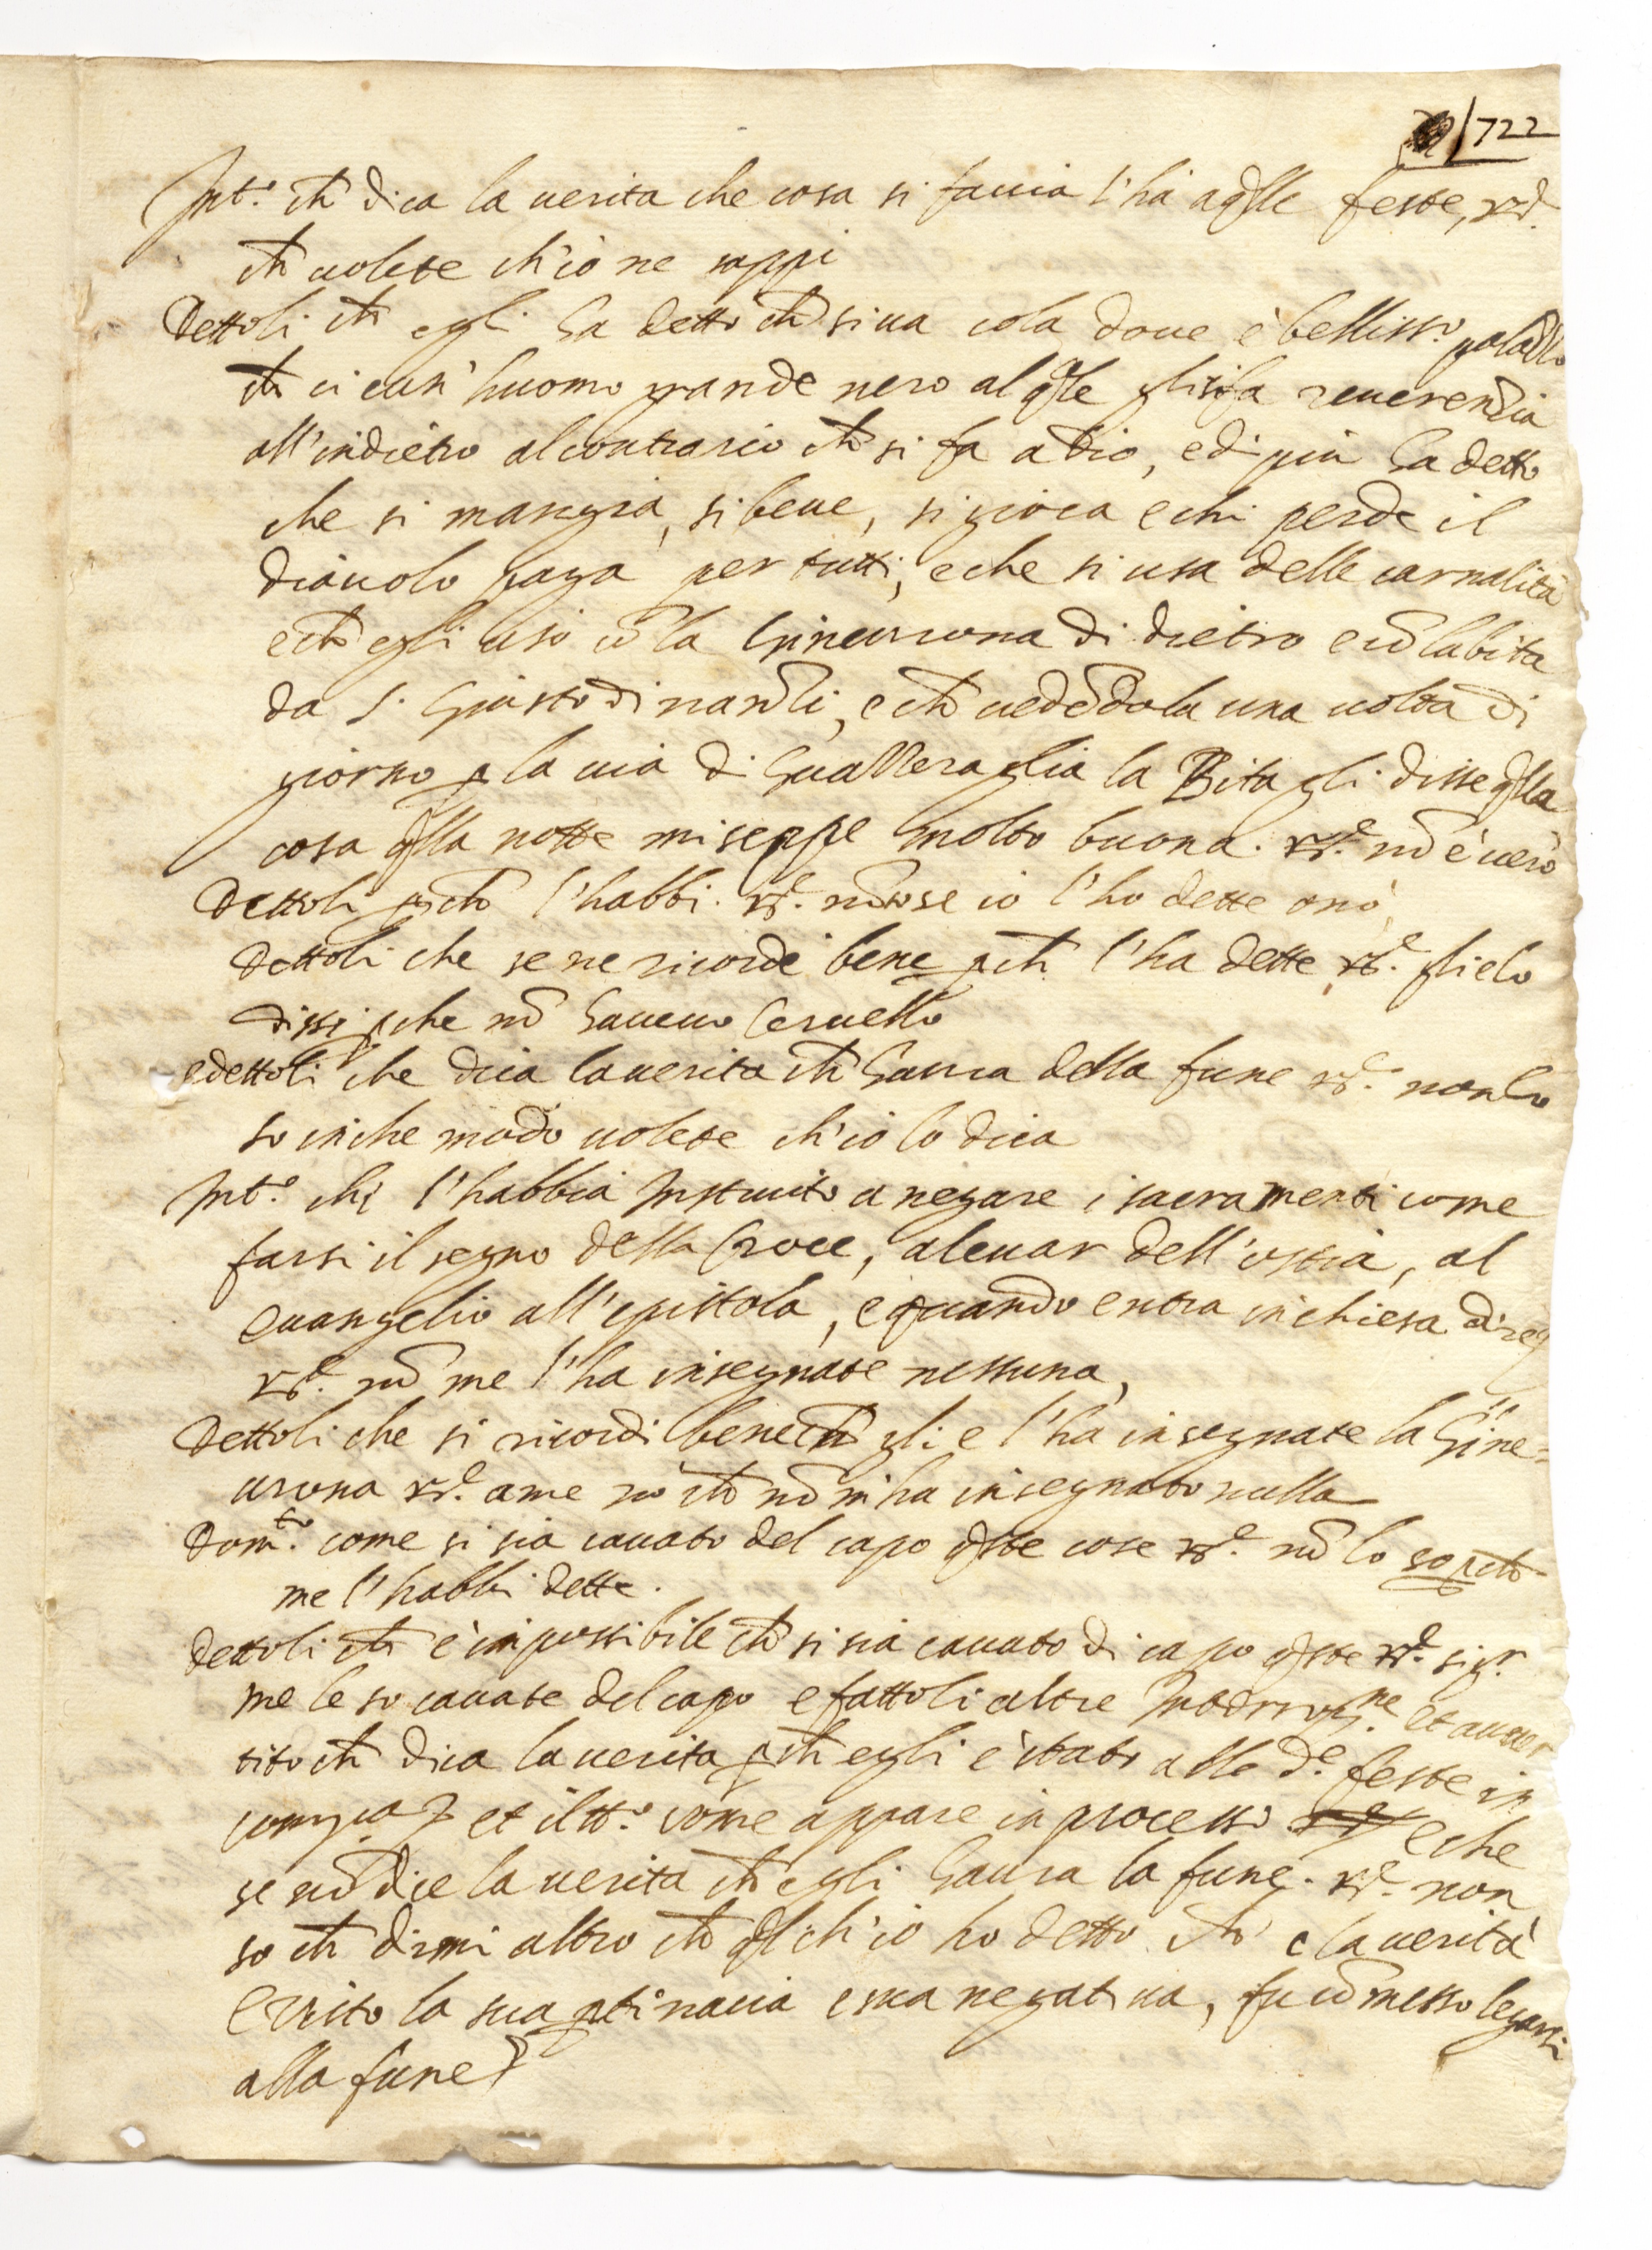 722
Int.º ch̃ dica la uerita che cosa si faccia l'há a q̃lle feste, rd.
ch̃ uolete ch'io ne sappi
Dettoli ch̃ egli ha detto ch̃ si ua cola doue è bellissº.
ch̃ ci è un'huomo grande nero al q̃le gli si fa reuerenzia
all'indietro al contrario ch̃ si fa a dio, e di piu ha detto
che si mangia, si beue, si gioca e chi perde il
diauolo paga per tutti, e che si usa delle carnalità
e ch̃ egli usò cõ la Gineurona di dietro e cõ la bita
da S. Giusto dinanzi, e ch̃ uedẽdola una uolta di
giorno p la uia di Gualleraglia la Bita gli disse q̃lla
cosa q̃lla notte mi seppe molto buona. rd.e nõ è uero
Dettoli pch̃ l'habbi. rd.e nõ so se io l'ho dette o no,
Dettoli che se ne ricorde bene pch̃ l'ha dette, rd.e glielo
dissi pche nõ haueuo Ceruello
e dettoli che dica la uerita ch̃ haura della fune rd.e non lo
so in che modo uolete ch'io lo dica
Int.º chi l'habbia Instruito a negare i sacramenti come
farsi il segno della Croce, al euar dell'ostia, al
euangelio all'epistola, e quando entra in chiesa
rd.e nõ me l'ha insegnate nessuna,
Dettoli che si ricordi bene ch̃ gli e l'ha insegnate la Gine=
urona rd.e a me nò ch̃ nõ m'ha insegnato nulla
Dom.to come si sia cauato del capo q̃ste cose rd.e nõ lo so pch̃
me l'habbi dette.
Dettoli ch̃ è impossibile ch̃ si sia cauato di capo q̃ste rd.e sig.r
me le so cauate del capo e fattoli altre et auuer
tito ch̃ dica la uerita pch̃ egli è stato alle d.e feste in
et il tt.º come appare in processo e che
se nõ dice la uerita ch̃ egli haura la fune. rd.e non
so ch̃ dirmi altro ch̃ q̃l ch'io ho detto ch̃ è la uerità
E uisto la sua ptinacia e sua negatiua, fu cõmesso legarsi
alla fune